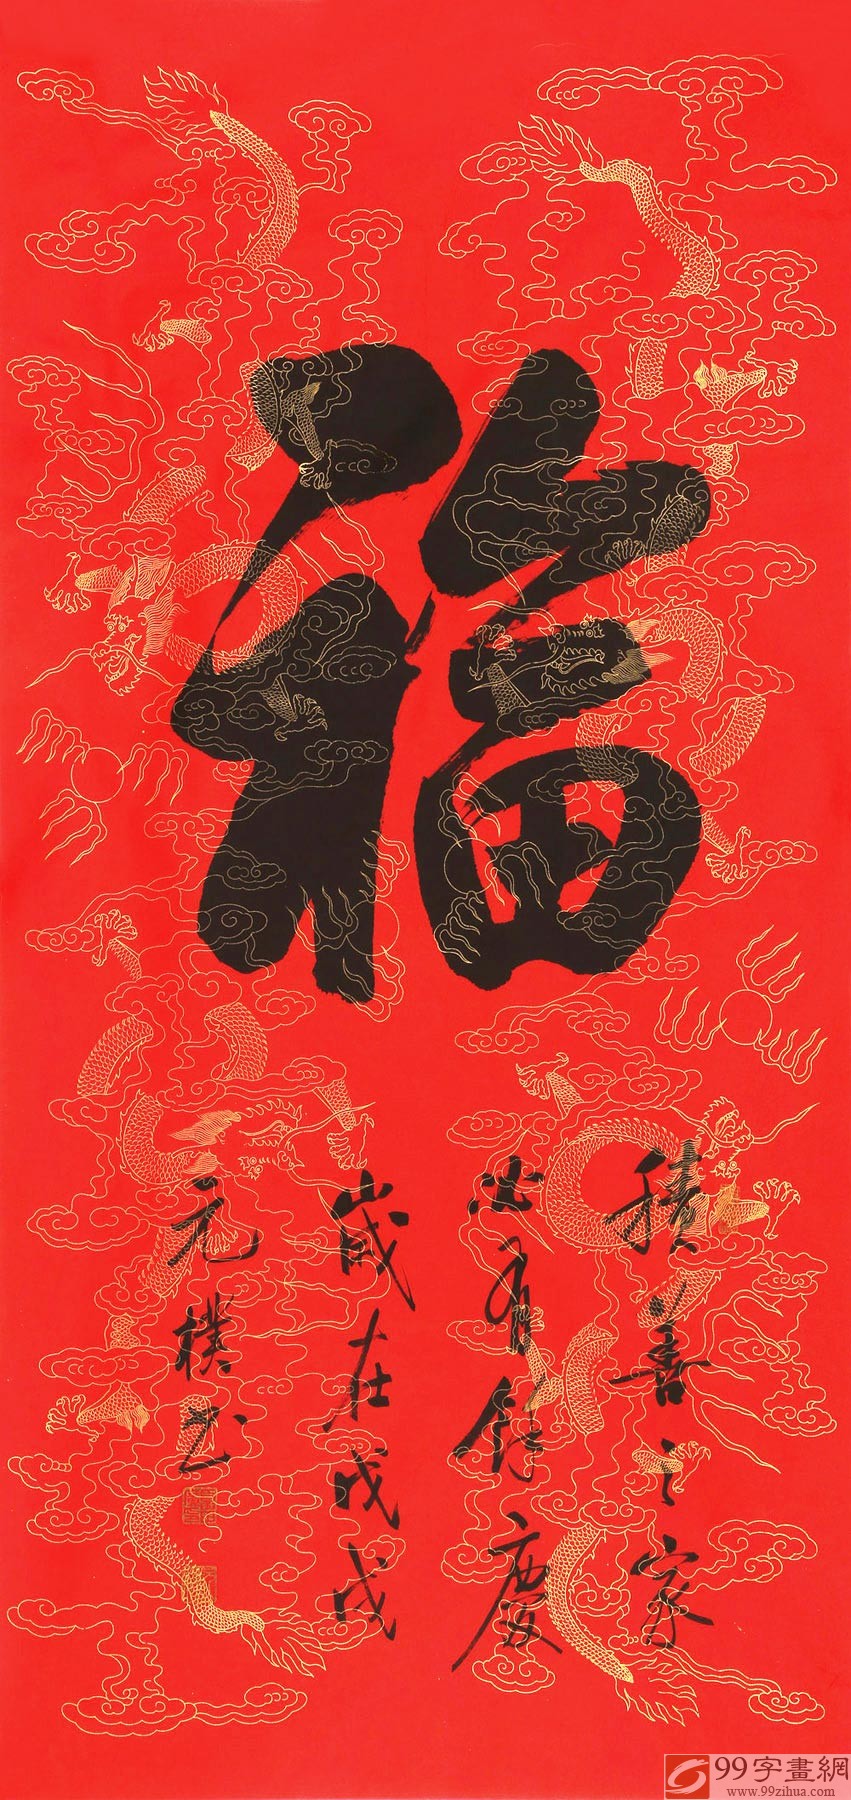 福
積善之家
必有餘慶
歲在戊戌
元樸书
99字畫網
www.99zihua.com